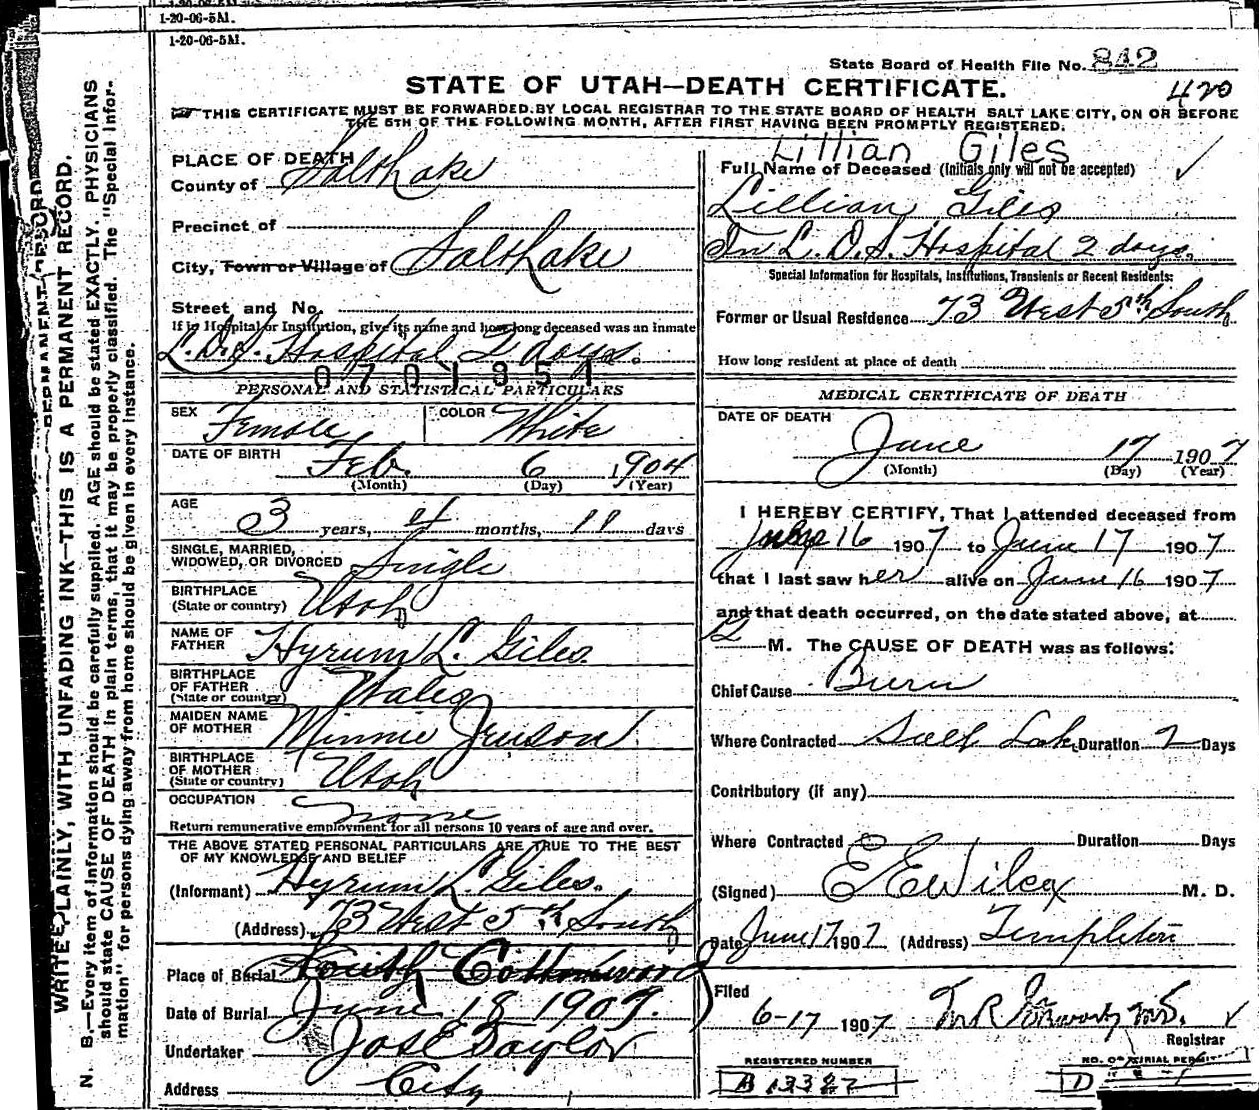 1-20-06-5M.
1-20-06-5M.
State Board of Health File No. 842
420
STATE OF UTAH—DEATH CERTIFICATE.
THIS CERTIFICATE MUST BE FORWARDED BY LOCAL REGISTRAR TO THE STATE BOARD OF HEALTH SALT LAKE CITY, ON OR BEFORE
THE 5TH OF THE FOLLOWING MONTH, AFTER FIRST HAVING BEEN PROMPTLY REGISTERED.
WRITE PLAINLY, WITH UNFADING INK—THIS IS A PERMANENT RECORD.
N. B.—Every item of information should be carefully supplied. AGE should be stated EXACTLY. PHYSICIANS
should state CAUSE OF DEATH in plain terms, that it may be properly classified. The "Special Infor-
mation" for persons dying away from home should be given in every instance.
PLACE OF DEATH
County of Salt Lake
Precinct of
City, Town or Village of Salt Lake
Street and No.
If in Hospital or Institution, give its name and how long deceased was an inmate
L.D.S. Hospital 2 days.
0701851
PERSONAL AND STATISTICAL PARTICULARS
SEX Female COLOR White
DATE OF BIRTH Feb. 6 1904
(Month) (Day) (Year)
AGE 3 years, 4 months, 11 days
SINGLE, MARRIED,
WIDOWED, OR DIVORCED Single
BIRTHPLACE
(State or country) Utah
NAME OF
FATHER Hyrum L. Giles.
BIRTHPLACE
OF FATHER
(State or country) Wales
MAIDEN NAME
OF MOTHER Minnie Jenson
BIRTHPLACE
OF MOTHER
(State or country) Utah
OCCUPATION none
Return remunerative employment for all persons 10 years of age and over.
THE ABOVE STATED PERSONAL PARTICULARS ARE TRUE TO THE BEST
OF MY KNOWLEDGE AND BELIEF
(Informant) Hyrum L. Giles.
(Address) 73 West 5th South
Place of Burial South Cottonwood
Date of Burial June 18 1907.
Undertaker Jos E Taylor
Address City
Lillian Giles
Full Name of Deceased (Initials only will not be accepted)
Lillian Giles
In L.D.S. Hospital 2 days.
Special Information for Hospitals, Institutions, Transients or Recent Residents:
Former or Usual Residence 73 West 5th South
How long resident at place of death
MEDICAL CERTIFICATE OF DEATH
DATE OF DEATH
June 17 1907
(Month) (Day) (Year)
I HEREBY CERTIFY, That I attended deceased from
16 1907 to June 17 1907
that I last saw her alive on June 16 1907
and that death occurred, on the date stated above, at
12 M. The CAUSE OF DEATH was as follows:
Chief Cause Burn
Where Contracted Salt Lake Duration 2 Days
Contributory (if any)
Where Contracted Duration Days
(Signed) E E Wilcox M. D.
Date June 17 1907 (Address) Templeton
Filed
6-17 1907
Registrar
REGISTERED NUMBER
NO. OF BURIAL PERMIT
B 13327
D